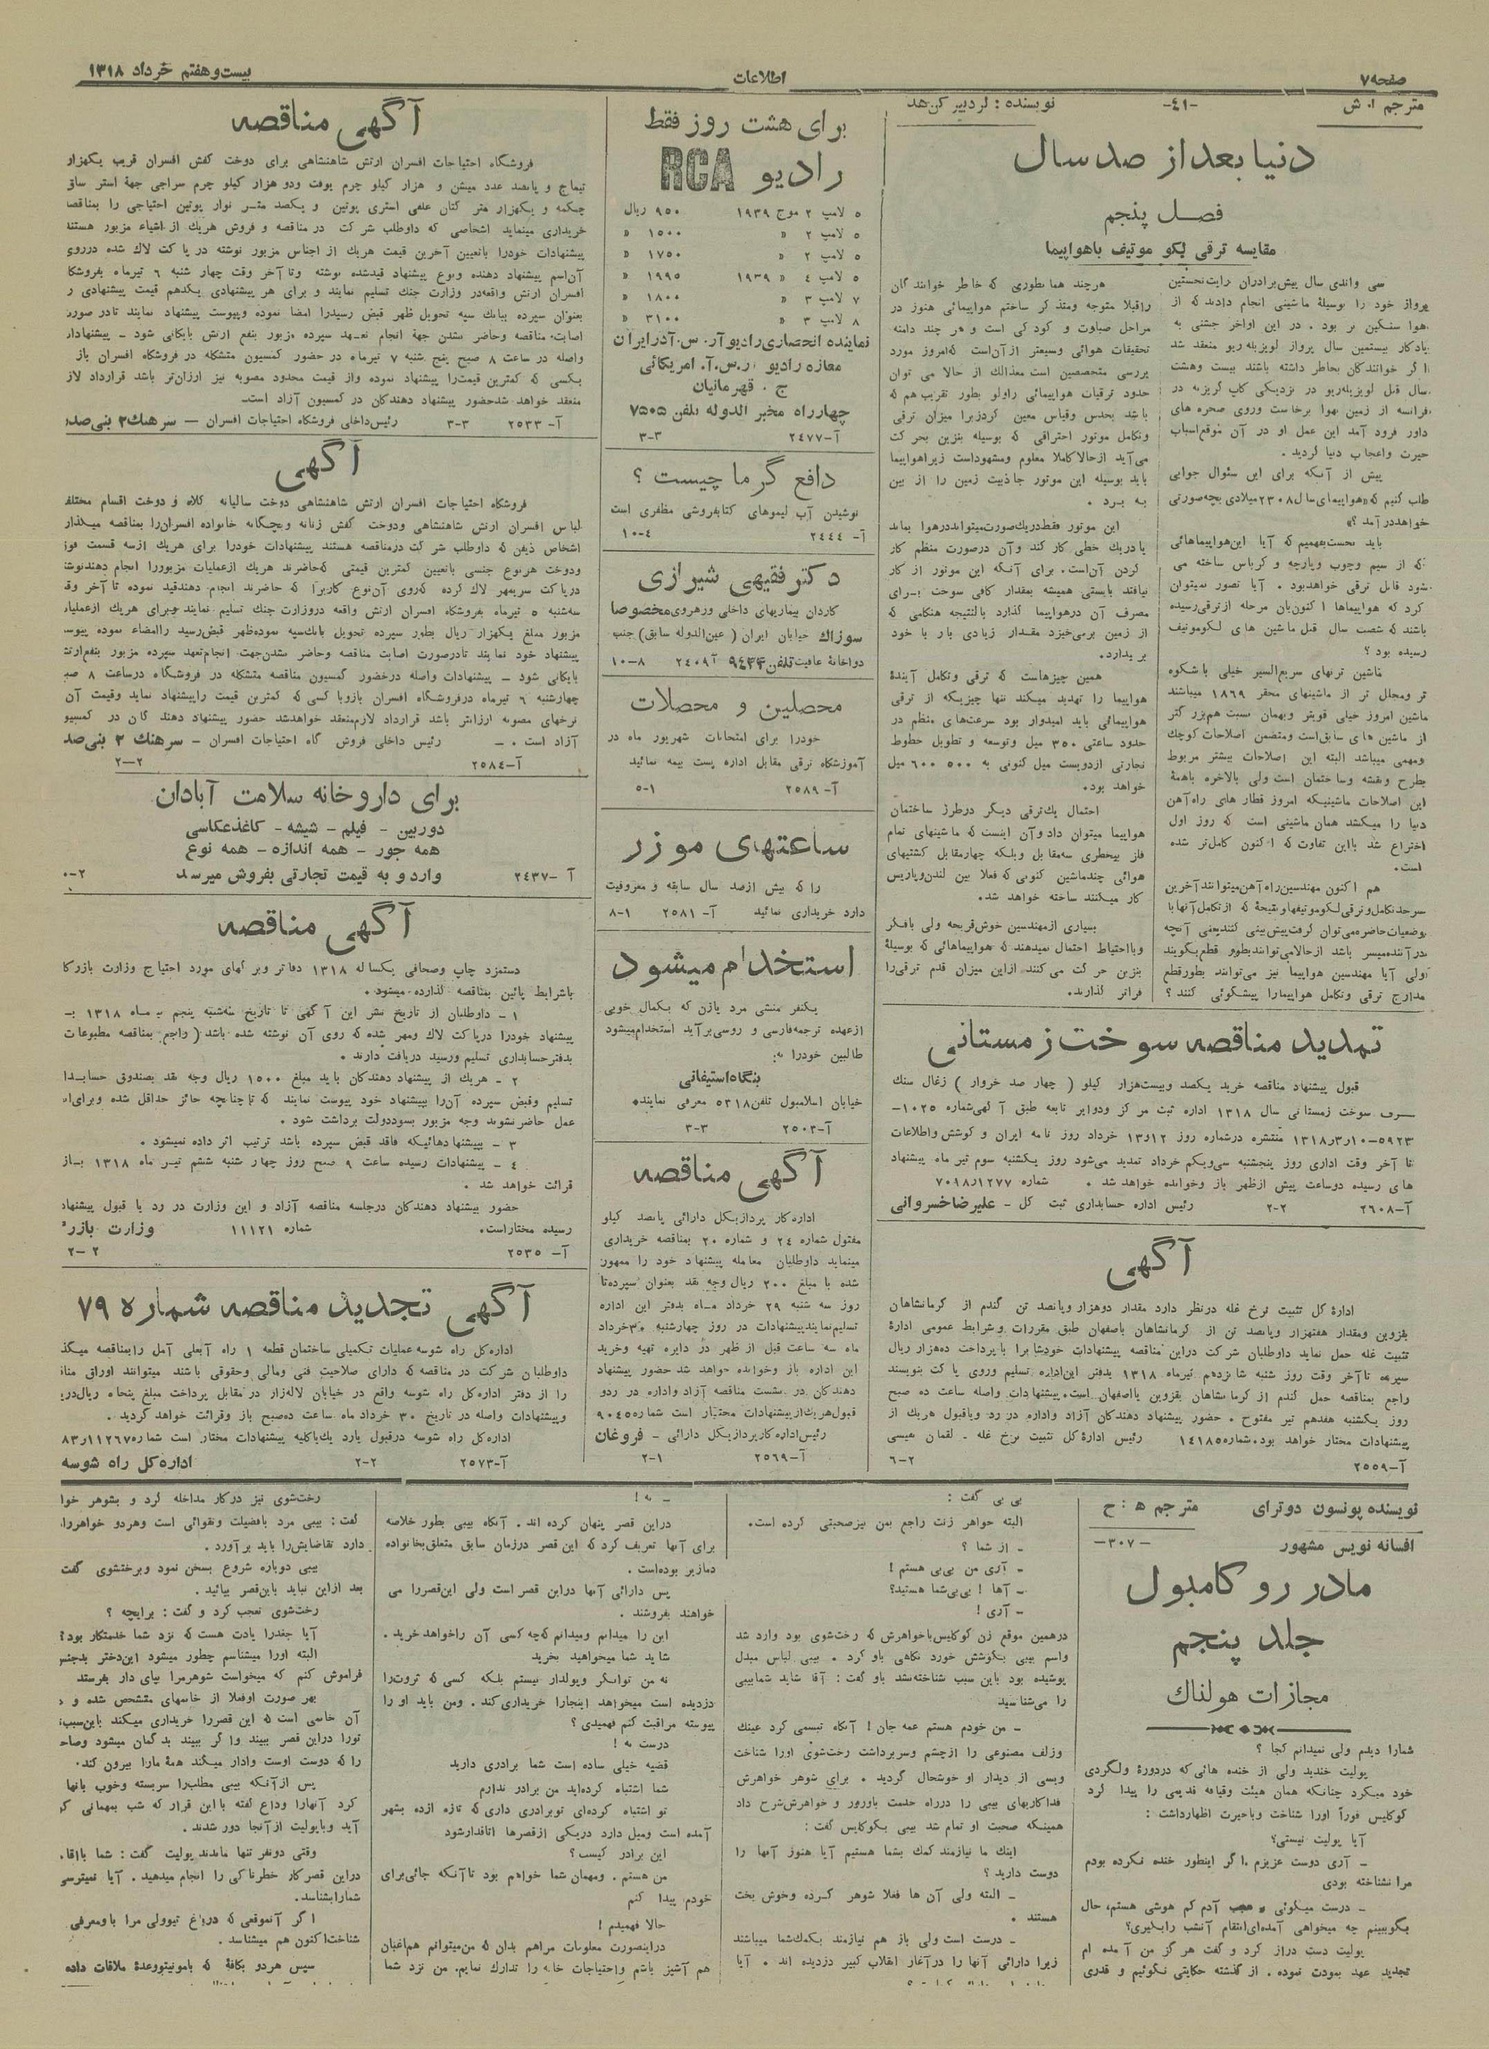 صفحه ۷
اطلاعات
بیست و هفتم خرداد ۱۳۱۸
مترجم ا. ش
-۴۱-
نویسنده : لرد بیر کن هد
دنیا بعد از صد سال
فصل پنجم
مقایسه ترقی لکو موتیف باهواپیما
سی واندی سال پیش برادران رایت نخستین
پرواز خود را بوسیلهٔ ماشینی انجام دادند که از
هوا سنگین تر بود . در این اواخر جشنی به
یادگار بیستمین سال پرواز لویز بله ریو منعقد شد
اگر خوانندگان بخاطر داشته باشند بیست وهشت
سال قبل لویز بله‌ریو در نزدیکی کاپ گریزنه در
فرانسه از زمین بهوا برخاست وروی صخره های
داور فرود آمد این عمل او در آن موقع اسباب
حیرت واعجاب دنیا گردید .
پیش از آنکه برای این سئوال جوابی
طلب کنیم که «هواپیمای سال ۲۳۰۸ میلادی بچه صورتی
خواهد در آمد ؟»
باید نخست بفهمیم که آیا این هواپیماهائی
که از سیم وچوب وپارچه و کرباس ساخته می
شود قابل ترقی خواهد بود . آیا تصور نمیتوان
کرد که هواپیماها اکنون بآن مرحله از ترقی رسیده
باشند که شصت سال قبل ماشین های لکوموتیف
رسیده بود ؟
ماشین ترنهای سریع السیر خیلی با شکوه
تر ومجلل تر از ماشینهای محقر ۱۸۶۹ میباشند
ماشین امروز خیلی قویتر وبهمان نسبت هم بزرگتر
از ماشین های سابق است ومتضمن اصلاحات کوچک
ومهمی میباشد البته این اصلاحات بیشتر مربوط
بطرح ونقشه وساختمان است ولی بالاخره باهمهٔ
این اصلاحات ماشینیکه امروز قطار های راه آهن
دنیا را میکشد همان ماشینی است که روز اول
اختراع شد بااین تفاوت که اکنون کامل تر شده
است .
هم اکنون مهندسین راه آهن میتوانند آخرین
سرحد تکامل و ترقی لکوموتیفها و نتیجهٔ که از تکامل آنها با
وضعیات حاضره می‌توان گرفت پیش بینی کنند یعنی آنچه
در آینده میسر باشد از حالا می‌توانند بطور قطع بگویند
ولی آیا مهندسین هواپیما نیز می‌توانند بطور قطع
مدارج ترقی وتکامل هواپیما را پیشگوئی کنند ؟
هر چند همانطوری که خاطر خوانندگان
راقبلا متوجه ومتذکر ساختم هواپیمائی هنوز در
مراحل صباوت و کودکی است و هر چند دامنه
تحقیقات هوائی وسیعتر از آن است که امروز مورد
بررسی متخصصین است معذالک از حالا می توان
حدود ترقیات هواپیمائی راولو بطور تقریب هم که
باشد بحدس وقیاس معین کرد زیرا میزان ترقی
وتکامل موتور احتراقی که بوسیله بنزین بحرکت
می‌آید از حالا کاملا معلوم و مشهود است زیرا هواپیما
باید بوسیله این موتور جاذبیت زمین را از بین
به برد .
این موتور فقط در یک صورت میتواند در هوا بماند
یا در یک خطی کار کند وآن درصورت منظم کار
کردن آن است . برای آنکه این موتور از کار
نیافتد بایستی همیشه بمقدار کافی سوخت برای
مصرف آن در هواپیما گذارد بالنتیجه هنگامی که
از زمین برمی‌خیزد مقدار زیادی بار با خود
بر یدارد.
همین چیزهاست که ترقی وتکامل آیندهٔ
هواپیما را تهدید میکند تنها چیزیکه از ترقی
هواپیمائی باید امیدوار بود سرعت‌های منظم در
حدود ساعتی ۳۵۰ میل وتوسعه و تطویل خطوط
تجارتی از دویست میل کنونی به ۵۰۰ ۶۰۰ میل
خواهد بود.
احتمال یک ترقی دیگر در طرز ساختمان
هواپیما میتوان داد وآن اینست که ماشینهای تمام
فلز بیخطری سه‌مقابل وبلکه چهارمقابل کشتیهای
هوائی چند ماشین کنونی که فعلا بین لندن و پاریس
کار میکنند ساخته خواهد شد.
بسیاری از مهندسین خوش قریحه ولی بافکر
وبا احتیاط احتمال نمیدهند که هواپیماهائی که بوسیلهٔ
بنزین حرکت می کنند ازاین میزان قدم ترقی را
فراتر گذارند.
تمدید مناقصه سوخت زمستانی
قبول پیشنهاد مناقصه خرید یکصد وبیست هزار کیلو ( چهار صد خروار ) زغال سنگ
سرف سوخت زمستانی سال ۱۳۱۸ اداره ثبت مرکز و دوایر تابعه طبق آگهی شماره ۱۰۲۵-
۵۹۲۳-۱۰ر۳ر۱۳۱۸ منتشره درشماره روز ۱۲ر۱۳ خرداد روز نامه ایران و کوشش واطلاعات
تا آخر وقت اداری روز پنجشنبه سی‌ویکم خرداد تمدید می‌شود روز یکشنبه سوم تیر ماه پیشنهاد
های رسیده دوساعت پیش ازظهر باز وخوانده خواهد شد . شماره ۱۲۷۷ر۷۰۹۸
آ-۲۶۰۸ ۲-۲ رئیس اداره حسابداری ثبت کل - علیرضا خسروانی
آگهی
ادارهٔ کل تثبیت نرخ غله درنظر دارد مقدار دوهزار وپانصد تن گندم از کرمانشاهان
بقزوین ومقدار هفتهزار وپانصد تن از کرمانشاهان باصفهان طبق مقررات و شرایط عمومی ادارهٔ
تثبیت غله حمل نماید داوطلبان شرکت دراین مناقصه پیشنهادات خودشانرا با پرداخت ده هزار ریال
سپرده تا آخر وقت روز شنبه شانزدهم تیرماه ۱۳۱۸ بدفتر این اداره تسلیم وروی پاکت بنویسند
راجع بمناقصه حمل گندم از کرمانشاهان بقزوین یا اصفهان است. پیشنهادات واصله ساعت ده صبح
روز یکشنبه هفدهم تیر مفتوح . حضور پیشنهاد دهندگان آزاد واداره در رد ویا قبول هریک از
پیشنهادات مختار خواهد بود . شماره ۱۴۱۸۵ رئیس ادارهٔ کل تثبیت نرخ غله . لقمان نفیسی
آ-۲۵۵۹ ۲-۶
برای هشت روز فقط
رادیو RCA
۵ لامپ ۲ موج ۱۹۳۹ ۹۵۰ ریال
۵ لامپ ۲ » ۱۵۰۰ »
۵ لامپ ۲ » ۱۷۵۰ »
۵ لامپ ۴ » ۱۹۳۹ ۱۹۹۵ »
۷ لامپ ۳ » ۱۸۰۰ »
۸ لامپ ۳ » ۳۱۰۰ »
نماینده انحصاری رادیو آر . س. آ در ایران
مغازه رادیو . ر.س.آ. امریکائی
ج . قهرمانیان
چهارراه مخبر الدوله تلفن ۷۵۰۵
آ-۲۴۷۷ ۳-۳
دافع گرما چیست ؟
نوشیدن آب لیموهای کتابفروشی مظفری است
آ- ۲۴۴۴ ۴-۱۰
دکتر فقیهی شیرازی
کاردان بیماریهای داخلی وزهروی مخصوصا
سوزاک خیابان ایران ( عین الدوله سابق) جنب
دواخانهٔ عافیت تلفن ۹۴۳۳ آ ۲۴۰۹ ۸-۱۰
محصلین و محصلات
خودرا برای امتحانات شهریور ماه در
آموزشگاه ترقی مقابل اداره پست بیمه نمائید
آ-۲۵۸۹ ۱-۵
ساعتهای موزر
را که بیش ازصد سال سابقه و معروفیت
دارد خریداری نمائید آ- ۲۵۸۱ ۱-۸
استخدام میشود
یکنفر منشی مرد یازن که بکمال خوبی
از عهده ترجمه فارسی و روسی بر آید استخدام میشود
طالبین خودرا به:
بنگاه استیفانی
خیابان اسلامبول تلفن ۵۳۱۸ معرفی نمایند•
آ-۲۵۰۳ ۳-۳
آگهی مناقصه
اداره کار پردازیکل دارائی پانصد کیلو
مفتول شماره ۲۴ و شماره ۲۰ بمناقصه خریداری
مینماید داوطلبان معامله پیشنهاد خود را ممهور
شده با مبلغ ۲۰۰ ریال وجه نقد بعنوان سپرده تا
روز سه شنبه ۲۹ خرداد ماه بدفتر این اداره
تسلیم نمایند پیشنهادات در روز چهارشنبه ۳۰ خرداد
ماه سه ساعت قبل از ظهر در دایره تهیه وخرید
این اداره باز وخوانده خواهد شد حضور پیشنهاد
دهندگان در نشست مناقصه آزاد واداره در ردو
قبول هریک از پیشنهادات مختار است شماره ۹۰۴۵
رئیس اداره کارپردازیکل دارائی - فروغان
آ-۲۵۶۹ ۱-۲
آگهی مناقصه
فروشگاه احتیاجات افسران ارتش شاهنشاهی برای دوخت کفش افسران قریب یکهزار
تیماج و پانصد عدد میشن و هزار کیلو چرم یوفت ودو هزار کیلو چرم سراجی جهة استر ساق
چکمه و یکهزار متر کتان علفی استری پوتین و یکصد متر نوار پوتین احتیاجی را بمناقصه
خریداری مینماید اشخاصی که داوطلب شرکت در مناقصه و فروش هریک از اشیاء مزبور هستند
پیشنهادات خودرا باتعیین آخرین قیمت هریک از اجناس مزبور نوشته در پاکت لاک شده درروی
آن اسم پیشنهاد دهنده ونوع پیشنهاد قیدشده نوشته وتا آخر وقت چهار شنبه ۶ تیرماه بفروشگاه
افسران ارتش واقعه در وزارت جنک تسلیم نمایند و برای هر پیشنهادی یکدهم قیمت پیشنهادی ر
بعنوان سپرده ببانک سپه تحویل ظهر قبض رسیدرا امضا نموده وپیوست پیشنهاد نمایند تادر صورت
اصابت مناقصه وحاضر نشدن جهة انجام تعهد سپرده مزبور بنفع ارتش بایگانی شود - پیشنهادات
واصله در ساعت ۸ صبح پنج شنبه ۷ تیرماه در حضور کمسیون متشکله در فروشگاه افسران باز
بکسی که کمترین قیمت را پیشنهاد نموده واز قیمت محدود مصوبه نیز ارزان‌تر باشد قرارداد لاز
منعقد خواهد شد حضور پیشنهاد دهندگان در کمسیون آزاد است.
آ-۲۵۳۳ ۳-۳ رئیس داخلی فروشگاه احتیاجات افسران — سرهنگ۲ بنی صدر
آگهی
فروشگاه احتیاجات افسران ارتش شاهنشاهی دوخت سالیانه کلاه و دوخت اقسام مختلف
لباس افسران ارتش شاهنشاهی ودوخت کفش زنانه وبچگانه خانواده افسران را بمناقصه میگذار
اشخاص ذیفن که داوطلب شرکت درمناقصه هستند پیشنهادات خودرا برای هریک ازسه قسمت فوق
ودوخت هر نوع جنسی باتعیین کمترین قیمتی که حاضرند هریک ازعملیات مزبوررا انجام دهند نوشته
درپاکت سربمهر لاک کرده که روی آن نوع کاریرا که حاضرند انجام دهند قید نموده تا آخر وقت
سه‌شنبه ۵ تیرماه بفروشگاه افسران ارتش واقعه در وزارت جنک تسلیم نمایند و برای هریک ازعملیات
مزبور مبلغ یکهزار ریال بطور سپرده تحویل بانک سپه نموده ظهر قبض رسید راامضاء نموده پیوست
پیشنهاد خود نمایند تادرصورت اصابت مناقصه وحاضر نشدن جهت انجام تعهد سپرده مزبور بنفع ارتش
بایگانی شود - پیشنهادات واصله درحضور کمسیون مناقصه متشکله در فروشگاه درساعت ۸ صبح
چهارشنبه ۶ تیرماه در فروشگاه افسران بازوبا کسی که کمترین قیمت راپیشنهاد نماید وقیمت آن
نرخهای مصوبه ارزانتر باشد قرارداد لازم منعقد خواهد شد حضور پیشنهاد دهندگان در کمسیون
آزاد است . - رئیس داخلی فروش گاه احتیاجات افسران - سرهنگ ۲ بنی صدر
آ-۲۵۸۴ ۲-۲
برای داروخانه سلامت آبادان
دوربین - فیلم - شیشه - کاغذ عکاسی
همه جور - همه اندازه - همه نوع
وارد و به قیمت تجارتی بفروش میرسد
آ -۲۴۳۷
آگهی مناقصه
دستمزد چاپ وصحافی یکساله ۱۳۱۸ دفاتر وبرگهای مورد احتیاج وزارت بازرگا
باشرایط پائین بمناقصه گذارده میشود .
۱ - داوطلبان از تاریخ نشر این آگهی تا تاریخ سه‌شنبه پنجم تیرماه ۱۳۱۸ بـ
پیشنهاد خودرا درپاکت لاک ومهر شده که روی آن نوشته شده باشد ( راجع بمناقصه مطبوعات
بدفتر حسابداری تسلیم ورسید دریافت دارند .
۲ - هریک از پیشنهاد دهندگان باید مبلغ ۱۵۰۰ ریال وجه نقد بصندوق حسابدا
تسلیم وقبض سپرده آن را بپیشنهاد خود پیوست نمایند که تا چنانچه حائز حداقل شده و برای
عمل حاضر نشوند وجه مزبور بسود دولت برداشت شود .
۳ - پیشنهاد هائیکه فاقد قبض سپرده باشد ترتیب اثر داده نمیشود .
۴ - پیشنهادات رسیده ساعت ۹ صبح روز چهار شنبه ششم تیر ماه ۱۳۱۸ باز
قرائت خواهد شد .
حضور پیشنهاد دهندگان درجلسه مناقصه آزاد و این وزارت در رد یا قبول پیشنهاد
رسیده مختار است. شماره ۱۱۱۲۱ وزارت بازر
آ- ۲۵۳۵ ۲-۲
آگهی تجدید مناقصه شماره ۷۹
اداره کل راه شوسه عملیات تکمیلی ساختمان قطعه ۱ راه آبعلی آمل رابمناقصه میگذ
داوطلبان شرکت در مناقصه که دارای صلاحیت فنی ومالی وحقوقی باشند میتوانند اوراق مناق
را از دفتر اداره کل راه شوسه واقع در خیابان لاله‌زار در مقابل پرداخت مبلغ پنجاه ریال دریا
وپیشنهادات واصله در تاریخ ۳۰ خرداد ماه ساعت ده صبح باز وقرائت خواهد گردید .
اداره کل راه شوسه درقبول یارد یک یا کلیه پیشنهادات مختار است شماره ۱۱۲۶۷ر۸۳
آ-۲۵۷۳ ۲-۲ اداره کل راه شوسه
نویسنده پونسون دوترای مترجم ه : ح
افسانه نویس مشهور -۳۰۷-
مادر رو کامبول
جلد پنجم
مجازات هولناک
شمارا دیدم ولی نمیدانم کجا ؟
پولیت خندید ولی از خنده هائی که دردورهٔ ولگردی
خود میکرد چنانکه همان هیئت وقیافه قدیمی را پیدا کرد
کوکلیس فوراً اورا شناخت وباحیرت اظهارداشت :
آیا پولیت نیستی؟
- آری دوست عزیزم .اگر اینطور خنده نکرده بودم
مرا نشناخته بودی
- درست میگوئی و عجب آدم کم هوشی هستم، حال
بگو ببینم چه میخواهی آمده‌ای انتقام آنشب را بگیری؟
پولیت دست دراز کرد و گفت هر گز من آمده ام
تجدید عهد بمودت نموده . از گذشته حکایتی نگوئیم و قدری
بی بی گفت :
البته خواهر زنت راجع بمن نیز صحبتی کرده است.
- از شما ؟
- آری من بی‌بی هستم !
- آها ! بی‌بی شما هستید؟
- آری !
درهمین موقع زن کوکلیس باخواهرش که رخت‌شوی بود وارد شد
واسم بیبی بگوشش خورد نگاهی باو کرد . بیبی لباس مبدل
پوشیده بود باین سبب شناخته نشد باو گفت : آقا شاید شما بیبی
را می‌شناسید
- من خودم هستم عمه جان ! آنگاه تبسمی کرد عینک
وزلف مصنوعی را ازچشم وسر برداشت رخت‌شوی اورا شناخت
وبسی از دیدار او خوشحال گردید . برای شوهر خواهرش
فداکاریهای بیبی را درراه خدمت باوروز و خواهرش شرح داد
همینکه صحبت او تمام شد بیبی بکوکلیس گفت :
اینک ما نیازمند کمک بشما هستیم آیا هنوز آنها را
دوست دارید ؟
- البته ولی آن ها فعلا شوهر کرده وخوش بخت
هستند .
- درست است ولی باز هم نیازمند بکمک شما میباشند
زیرا دارائی آنها را در آغاز انقلاب کبیر دزدیده اند . آیا
- نه !
دراین قصر پنهان کرده اند . آنگاه بیبی بطور خلاصه
برای آنها تعریف کرد که این قصر درزمان سابق متعلق بخانواده
دمازیر بوده است.
پس دارائی آنها دراین قصر است ولی این قصررا می
خواهند بفروشند .
این را میدانم ومیدانم که چه کسی آن راخواهد خرید .
شاید شما میخواهید بخرید
نه من توانگر وپولدار نیستم بلکه کسی که ثروت را
دزدیده است میخواهد اینجارا خریداری کند . ومن باید او را
پیوسته مراقبت کنم فهمیدی ؟
درست نه !
قضیه خیلی ساده است شما برادری دارید
شما اشتباه کرده‌اید من برادر ندارم
تو اشتباه کرده‌ای تو برادری داری که تازه ازده بشهر
آمده است ومیل دارد در یکی ازقصرها اتاقدارشود
این برادر کیست ؟
من هستم . ومهمان شما خواهم بود تا آنکه جائی برای
خودم پیدا کنم
حالا فهمیدم !
دراینصورت معلومات مراهم بدان که من میتوانم هم باغبان
هم آشپز باشم واحتیاجات خانه را تدارک نمایم. من نزد شما
رخت‌شوی نیز درکار مداخله کرد و بشوهر خوا
گفت : بیبی مرد بافضیلت وتقوائی است وهردو خواهررا،
دارد تقاضایش را باید بر آورد .
بیبی دوباره شروع بسخن نمود وبرختشوی گفت
بعد ازاین نباید باین قصر بیائید .
رخت‌شوی تعجب کرد و گفت : برایچه ؟
آیا جغدرا یادت هست که نزد شما خدمتکار بود؟
البته اورا میشناسم چطور میشود این دختر بدجنس
فراموش کنم که میخواست شوهرمرا بپای دار بفرستد
بهر صورت اوفعلا از خانمهای متشخص شده و
آن خانمی است که این قصررا خریداری میکند باین سبب
تورا دراین قصر ببیند واگر ببیند بدگمان میشود وصاحب
را که دوست اوست وادار میکند همهٔ مارا بیرون کند.
پس از آنکه بیبی مطلب را سربسته وخوب بآنها
کرد آنهارا وداع گفته با این قرار که شب بمهمانی کو
آید وباپولیت از آنجا دور شدند .
وقتی دونفر تنها ماندند پولیت گفت : شما باآقا.
دراین قصر کار خطرناکی را انجام میدهید . آیا نمیترسی
شمارا بشناسد.
اگر آنموقعی که دروغ تیوولی مرا باومعرفی
شناخت اکنون هم میشناسد .
سپس هردو بکافهٔ که بامونیتو وعدهٔ ملاقات داده